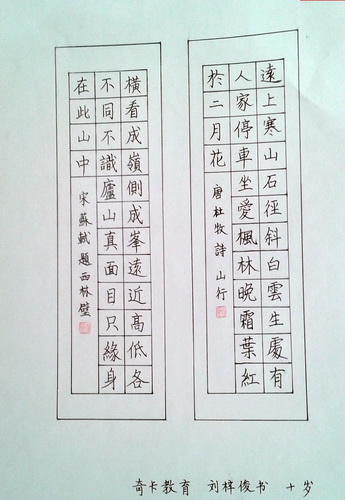 遠上寒山石徑斜白雲生處有
人家停車坐愛楓林晚霜葉紅
於二月花 唐杜牧詩 山行
橫看成嶺側成峯遠近高低各
不同不識廬山真面目只緣身
在此山中 宋蘇軾題西林壁
奇卡教育 刘梓俊书 十岁